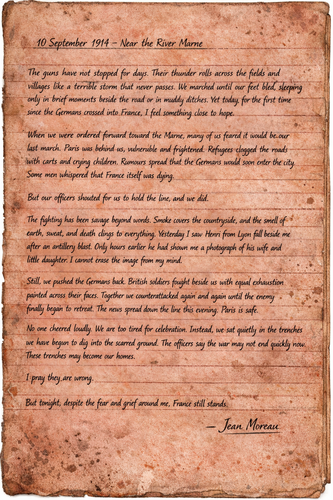 10 September 1914 – Near the River Marne
The guns have not stopped for days. Their thunder rolls across the fields and
villages like a terrible storm that never passes. We marched until our feet bled, sleeping
only in brief moments beside the road or in muddy ditches. Yet today, for the first time
since the Germans crossed into France, I feel something close to hope.
When we were ordered forward toward the Marne, many of us feared it would be our
last march. Paris was behind us, vulnerable and frightened. Refugees clogged the roads
with carts and crying children. Rumours spread that the Germans would soon enter the city.
Some men whispered that France itself was dying.
But our officers shouted for us to hold the line, and we did.
The fighting has been savage beyond words. Smoke covers the countryside, and the smell of
earth, sweat, and death clings to everything. Yesterday I saw Henri from Lyon fall beside me
after an artillery blast. Only hours earlier he had shown me a photograph of his wife and
little daughter. I cannot erase the image from my mind.
Still, we pushed the Germans back. British soldiers fought beside us with equal exhaustion
painted across their faces. Together we counterattacked again and again until the enemy
finally began to retreat. The news spread down the line this evening: Paris is safe.
No one cheered loudly. We are too tired for celebration. Instead, we sat quietly in the trenches
we have begun to dig into the scarred ground. The officers say the war may not end quickly now.
These trenches may become our homes.
I pray they are wrong.
But tonight, despite the fear and grief around me, France still stands.
— Jean Moreau